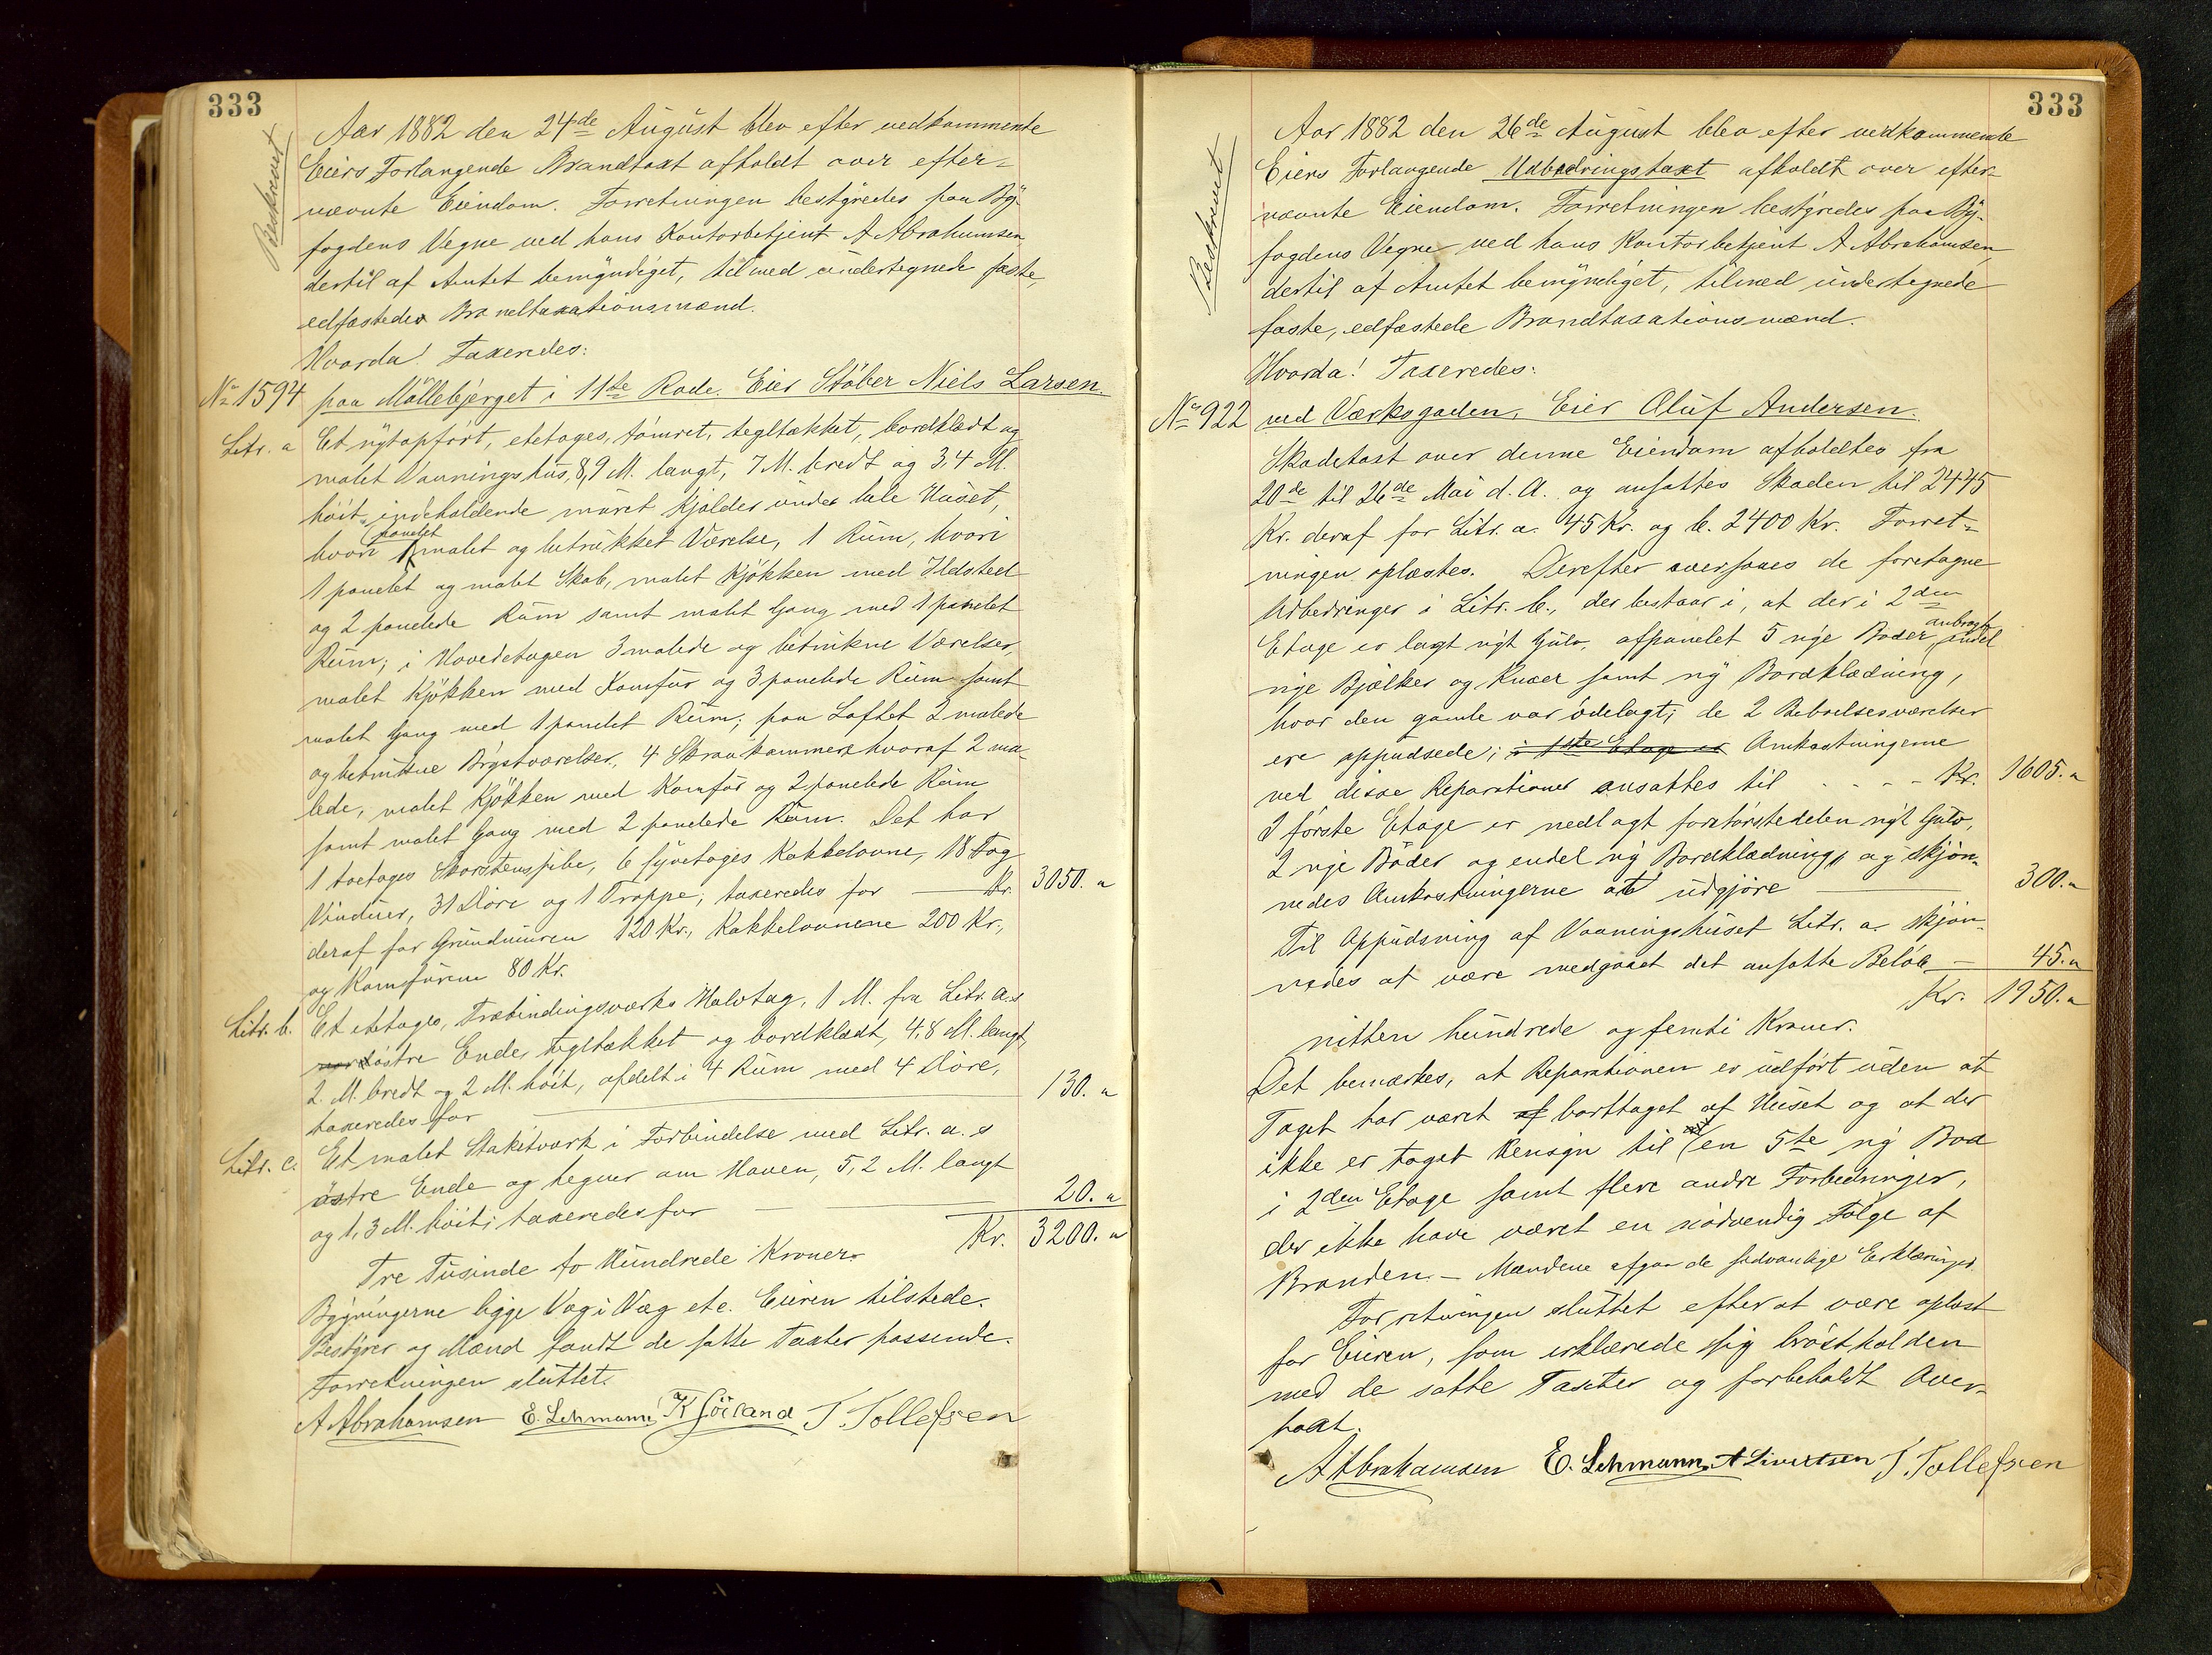 333
Beskrevet
Aar 1882 den 24de August blev efter vedkommente
Eiers Forlangende Brandtaxt afholdt over efter-
nævnte Eiendom. Forretningen bestyredes paa By-
fogdens Vegne ved hans Kontorbetjent A Abrahamsen,
dertil af Amtet bemyndiget, tilmed undertegnede faste,
edfæstede Brandtaxationsmænd.
Hvorda! Taxeredes:
No 1594 paa Möllebjerget i 11te Rode. Eier Stöber Niels Larsen.
Litr. a Et nytopfört, etetages, tömret, tegltækket, bordklædt og
malet Vaaningshus, 8,9 M. langt, 7 M. bredt og 3,4 M.
höit, indeholdende muret Kjælder under hele Huset,
hvori 1 panelet malet og betrukket Værelse, 1 Rum, hvori
1 panelet og malet Skab, malet Kjökken med Ildsted
og 2 panelede Rum samt malet Gang med 1 panelet
Rum; i Hovedetagen 3 malede og betrukne Værelser,
malet Kjökken med Komfur og 3 panelede Rum samt
malet Gang med 1 panelet Rum; paa Loftet 2 malede
og betrukne Brystværelser, 4 Skraakammere hvoraf 2 ma-
lede, malet Kjökken med Komfur og 2 panelede Rum
samt malet Gang med 2 panelede Rum. Det har
1 toetages Skorstenspibe, 6 fyretages Kakkelovne, 18 Fag
Vinduer, 31 Döre og 1 Trappe; taxeredes for Kr. 3050. "
deraf for Grundmuren 120 Kr., Kakkelovnene 200 Kr.,
og Komfurene 80 Kr.
Litr. b. Et etetages, Træbindingsværks Halvtag, 1 M. fra Litr. a.s
nord östre Ende, tegltækket og bordklædt, 4,8 M. langt,
2. M. bredt og 2 M. höit, afdelt i 4 Rum med 4 Döre,
taxeredes for 130. "
Litr. c. Et malet Stakitværk i Forbindelse med Litr. a.s
östre Ende og hegner om Haven, 5,2 M. langt
og 1,3 M. höit; taxeredes for 20. "
Tre Tusinde to Hundrede Kroner. Kr. 3200. "
Bygningerne ligge Væg i Væg etc. Eieren tilstede.
Bestyrer og Mænd fandt de satte Taxter passende.
Forretningen sluttet.
A Abrahamsen E. Lehmann T. Tollefsen
333
Beskrevet
Aar 1882 den 26de August blev efter vedkommende
Eiers Forlangende Udbedringstaxt afholdt over efter-
nævnte Eiendom. Forretningen bestyredes paa By-
fogdens Vegne ved hans Kontorbetjent A Abrahamsen,
dertil af Amtet bemyndiget, tilmed undertegnede
faste, edfæstede Brandtaxationsmænd.
Hvorda! Taxeredes:
No 922 ved Værksgaden. Eier Oluf Andersen.
Skadetaxt over denne Eiendom afholdtes fra
20de til 26de Mai d. A. og ansattes Skaden til 2445
Kr. deraf for Litr. a. 45 Kr. og b. 2400 Kr. Forret-
ningen oplæstes. Derefter oversaaes de foretagne
Udbedringer i Litr. b., der bestaar i, at der i 2den
Etage er lagt nyt Gulv, afpanelet 5 nye Boder, anbragt endel
nye Bjælker og Knær samt ny Bordklædning,
hvor den gamle var ödelagt; de 2 Beboelsesværelser
ere oppudsede; i 1ste Etage er Omkostningerne
ved disse Reparationer ansattes til Kr. 1605. "
I förste Etage er nedlagt forstörstedelen nyt Gulv,
2 nye Boder og endel ny Bordklædning, og skjön-
nedes Omkostningerne at udgjöre 300. "
Til Oppudsning af Vaaningshuset Litr. a. skjön-
nedes at være medgaaet det ansatte Belöb 45. "
Kr. 1950. "
nitten hundrede og femti Kroner.
Det bemærkes, at Reparationen er udfört uden at
Taget har været af borttaget af Huset og at der
ikke er taget Hensyn til at en 5te ny Bod
i 2den Etage samt flere andre Forbedringer,
der ikke have været en nödvendig Fölge af
Branden. - Mændene afgav de sedvanlige Erklæringer.
Forretningen sluttet efter at være oplæst
for Eieren, som erklærede sig bröstholden
med de satte Taxter og forbeholdt Over-
taxt.
A Abrahamsen E. Lehmann A Sivertsen T. Tollefsen